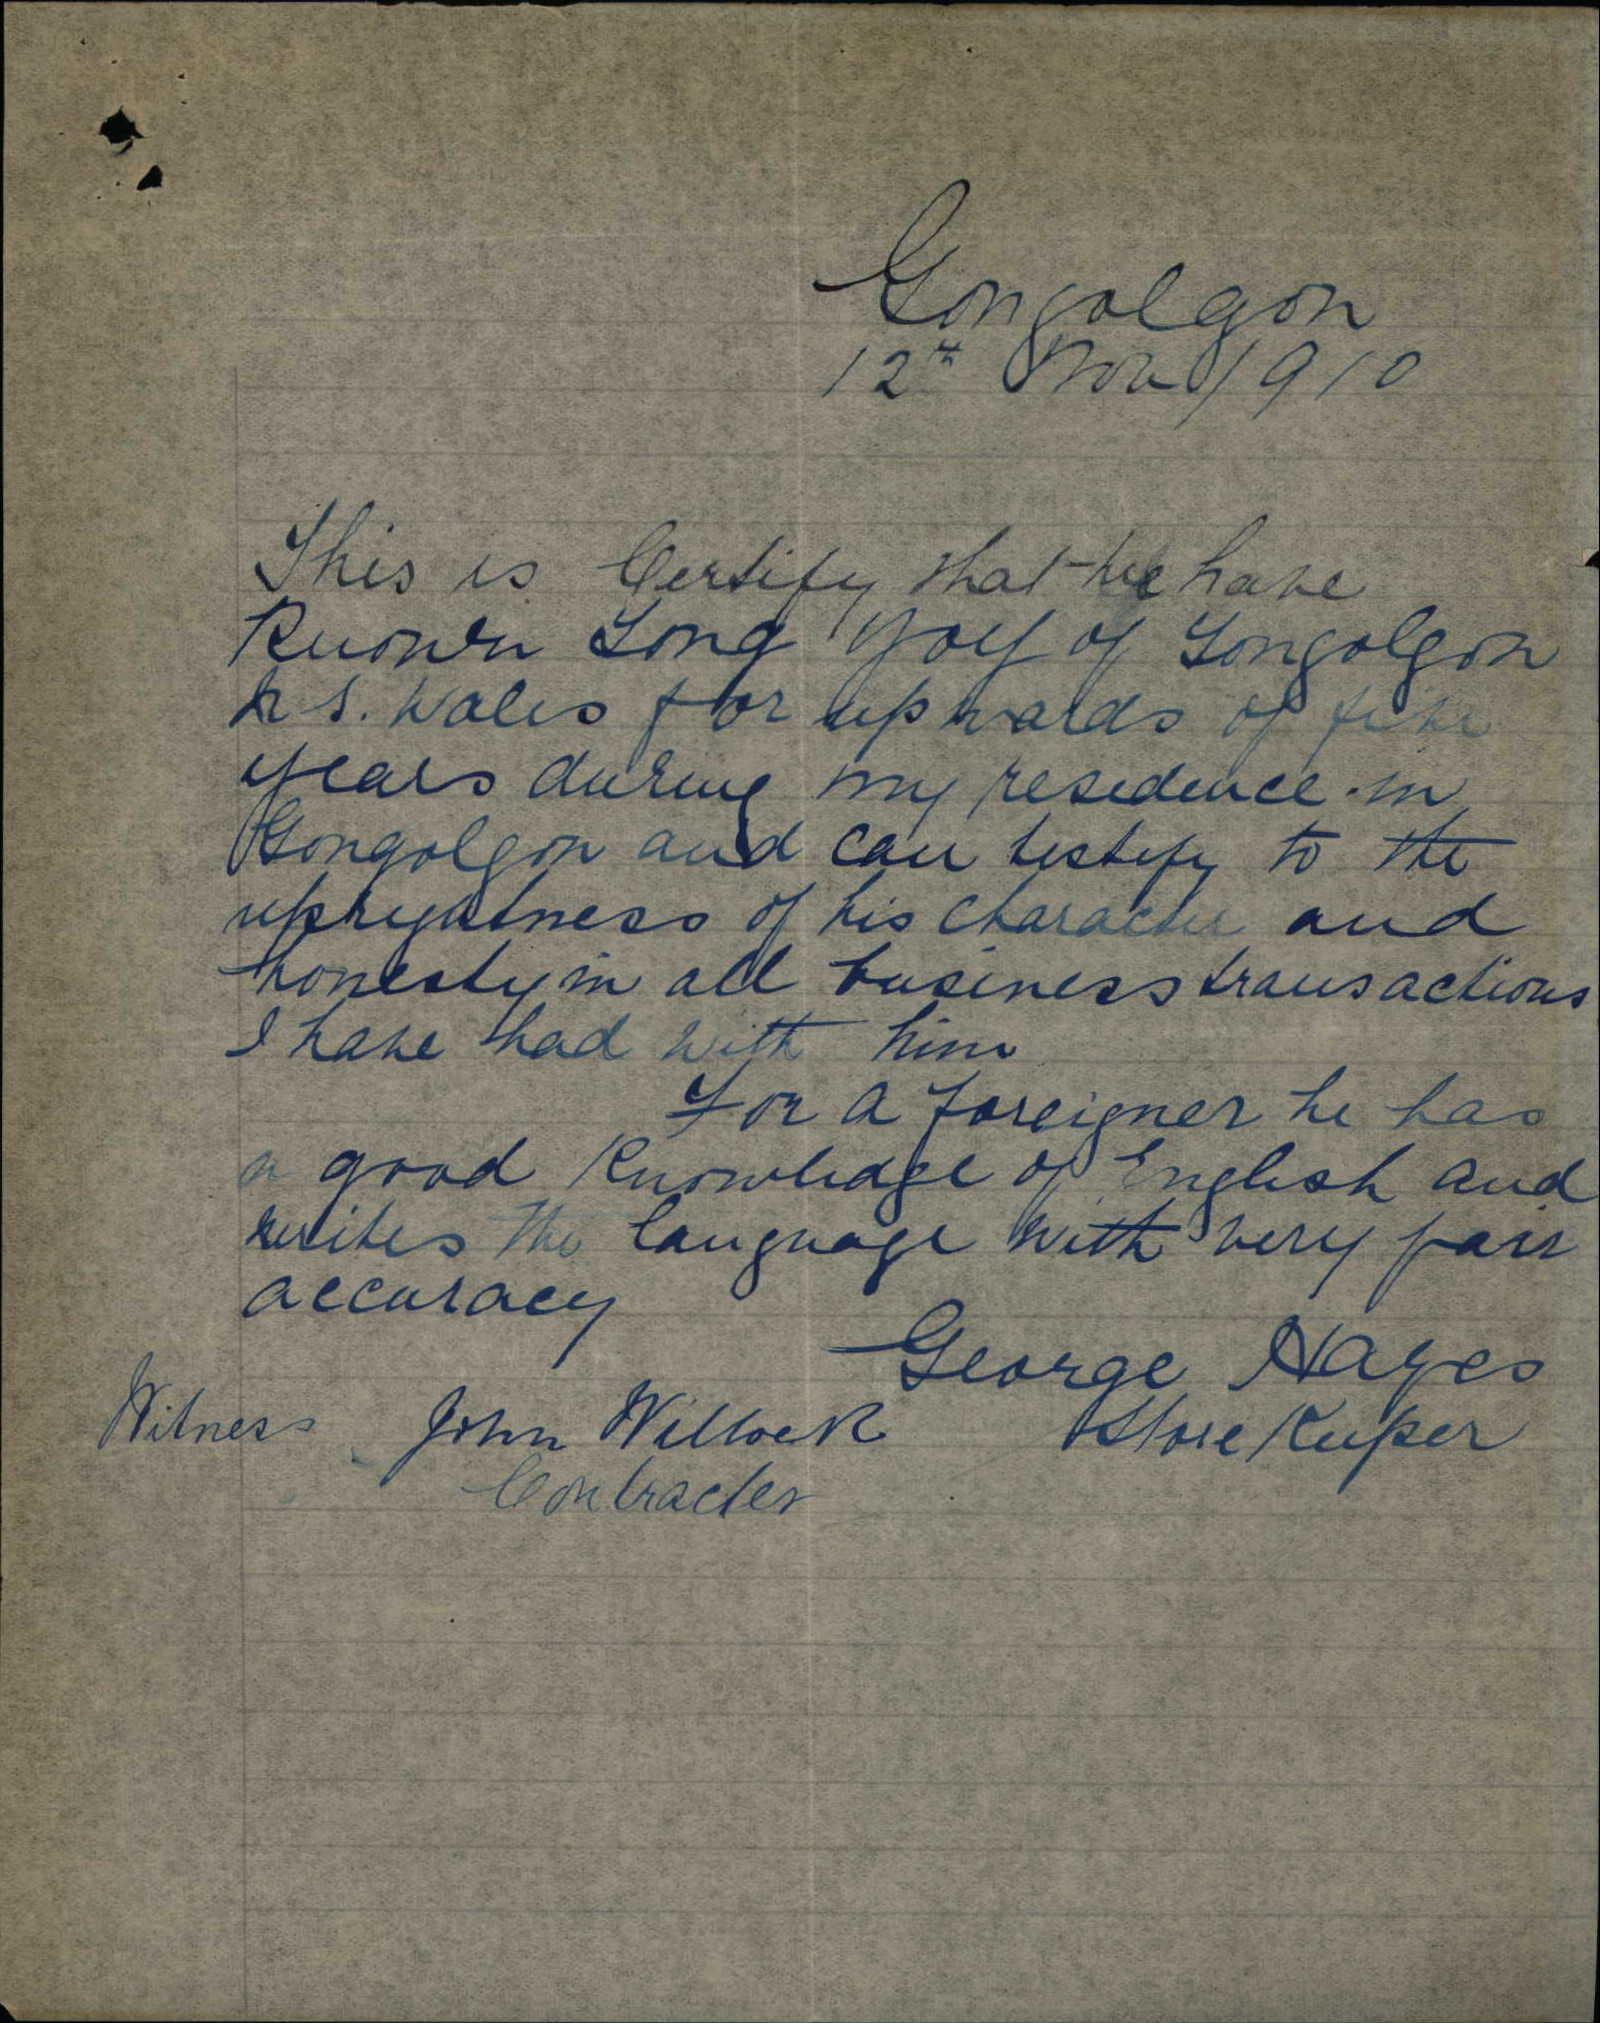 Gongolgon
12th Nov 1910
This is Certify that we have
Known Yong Yow of Gongolgon
N S. Wales for upwards of five
years during my residence in
Gongolgon and can testify to the
uprightness of his character and
honesty in all business transactions
I have had with him
For a foreigner he has
a good Knowledge of English and
writes the language with very fair
accuracy
George Hayes
Witness John Willock Store Keeper
Contracter